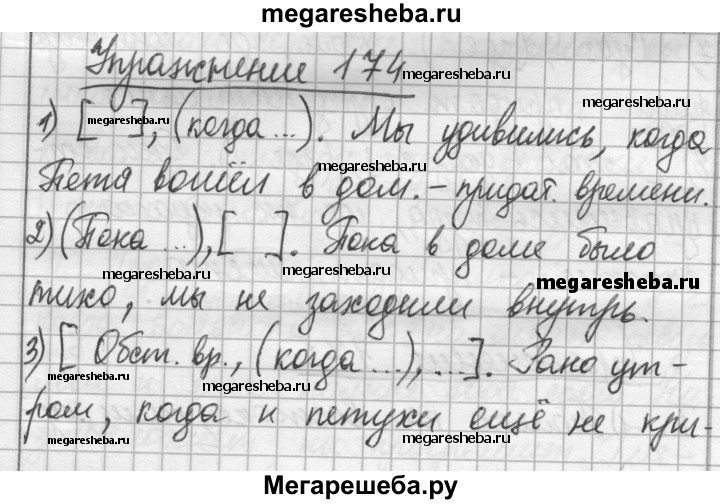 megaresheba.ru
Упражнение 174
megaresheba.ru
megaresheba.ru
1) [ megaresheba.ru ], (когда ...). Мы удивились, когда
megaresheba.ru
Петя вошёл в дом. – придат. времени.
2) (Пока ...), [ ]. Пока в доме было
megaresheba.ru
megaresheba.ru
тихо, мы не заходили внутрь.
3) [ Обст. вр., (когда ...), ...]. Рано ут-
megaresheba.ru
megaresheba.ru
ром, когда и петухи ещё не кри-
megaresheba.ru
megaresheba.ru
Мегарешеба.ру